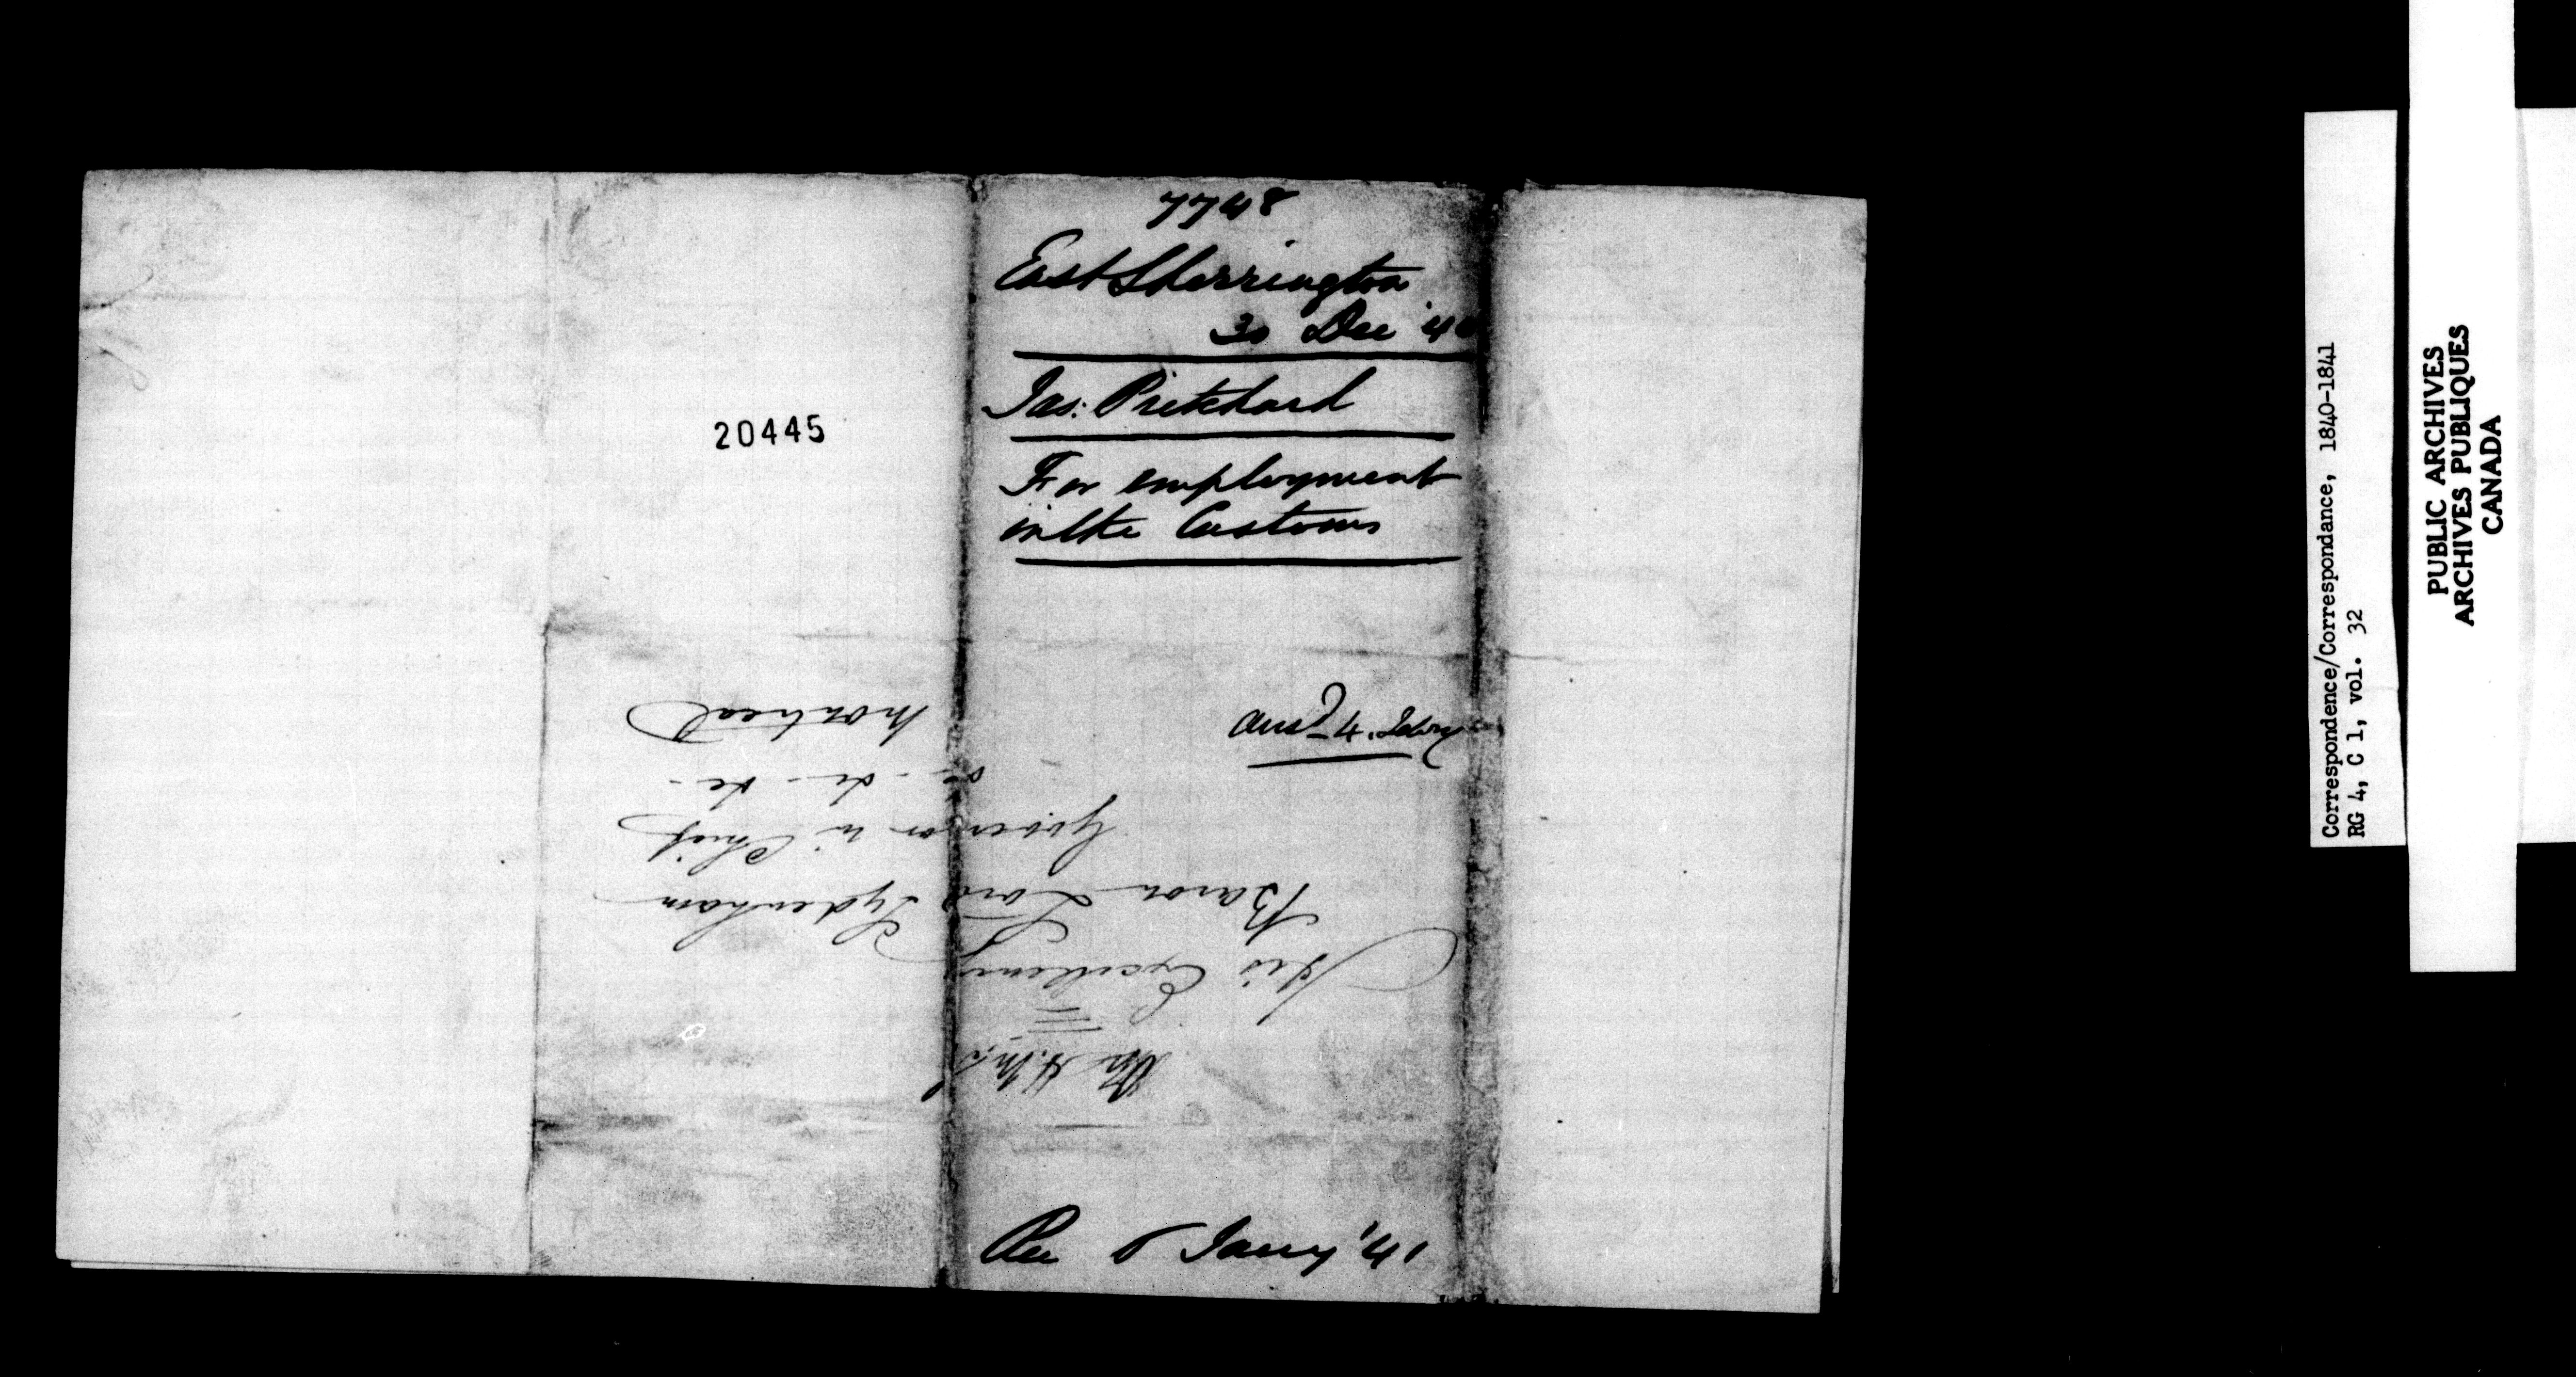 7748
East Sherrington
30 Dec '40
Jas: Pritchard
For employment
in the Customs
20445
Ansd 4. Febry
On H.M.S.
His Excellency
Baron Lord Sydenham
Governor in Chief
&c - &c - &c -
Montreal
Rec 8 Jany '41
Correspondence/Correspondance, 1840-1841
RG 4, C 1, vol. 32
PUBLIC ARCHIVES
ARCHIVES PUBLIQUES
CANADA